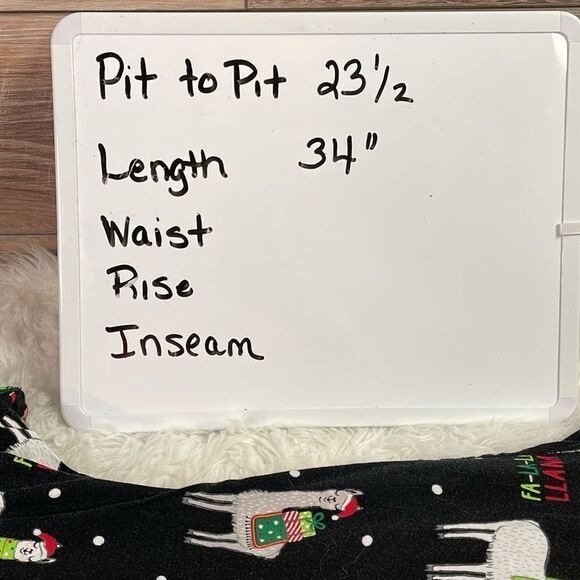 Pit to Pit 23 1/2
Length 34"
Waist
Rise
Inseam
FA-LA-LA
LLAMA